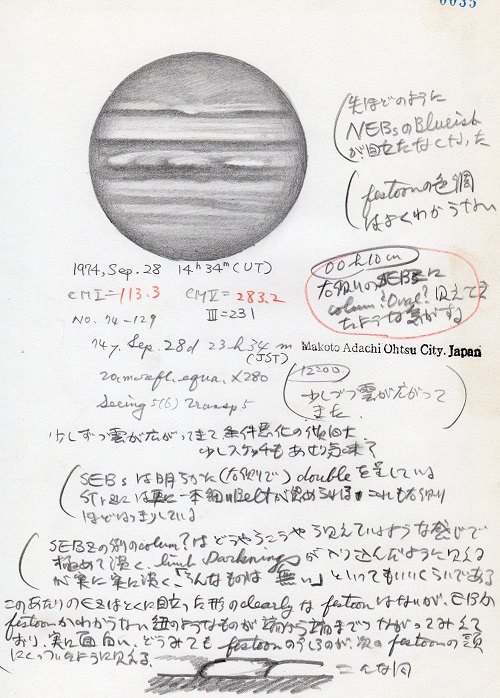 0035
先ほどのように
NEBsのBlueish
が目立たなくなった
festoonの色調
はよくわからない
1974, Sep. 28 14h 34m (UT)
CMI = 113.3 CMII = 283.2
No. 74-129 III = 231
74y. Sep. 28d 23h 34m
(JST)
20cm refl. equa. ×280
Seeing 5(6) Transp 5
00h10m
右よりのSEBZに
column? Oval? 見えてき
たような気がする
Makoto Adachi Ohtsu City. Japan
少しづつ雲が広がって
きた.
少しずつ雲が広がってきて条件悪化の
少しスケッチもあせり気味?
SEBsは明らかに(右よりで) doubleを呈している
STrZには 一本細いBeltが認められる これも右より
ほどはっきりしている
SEBZの別のcolum?はどうやらこうやら見えているような感じで
極めて淡く、limb Darkningが入り込んだように見える
が実に実に淡く「そんなものは無い」といってもいいくらいである
このあたりのEZはとくに目立った形のclearlyなfestoonはないが、EBか
festoonかわからない紐のようなものが端から端までつながってみえて
おり、実に面白い。どうみてもfestoonのうしろが、次のfestoonの頭
にくっついたように見える。
こんな風